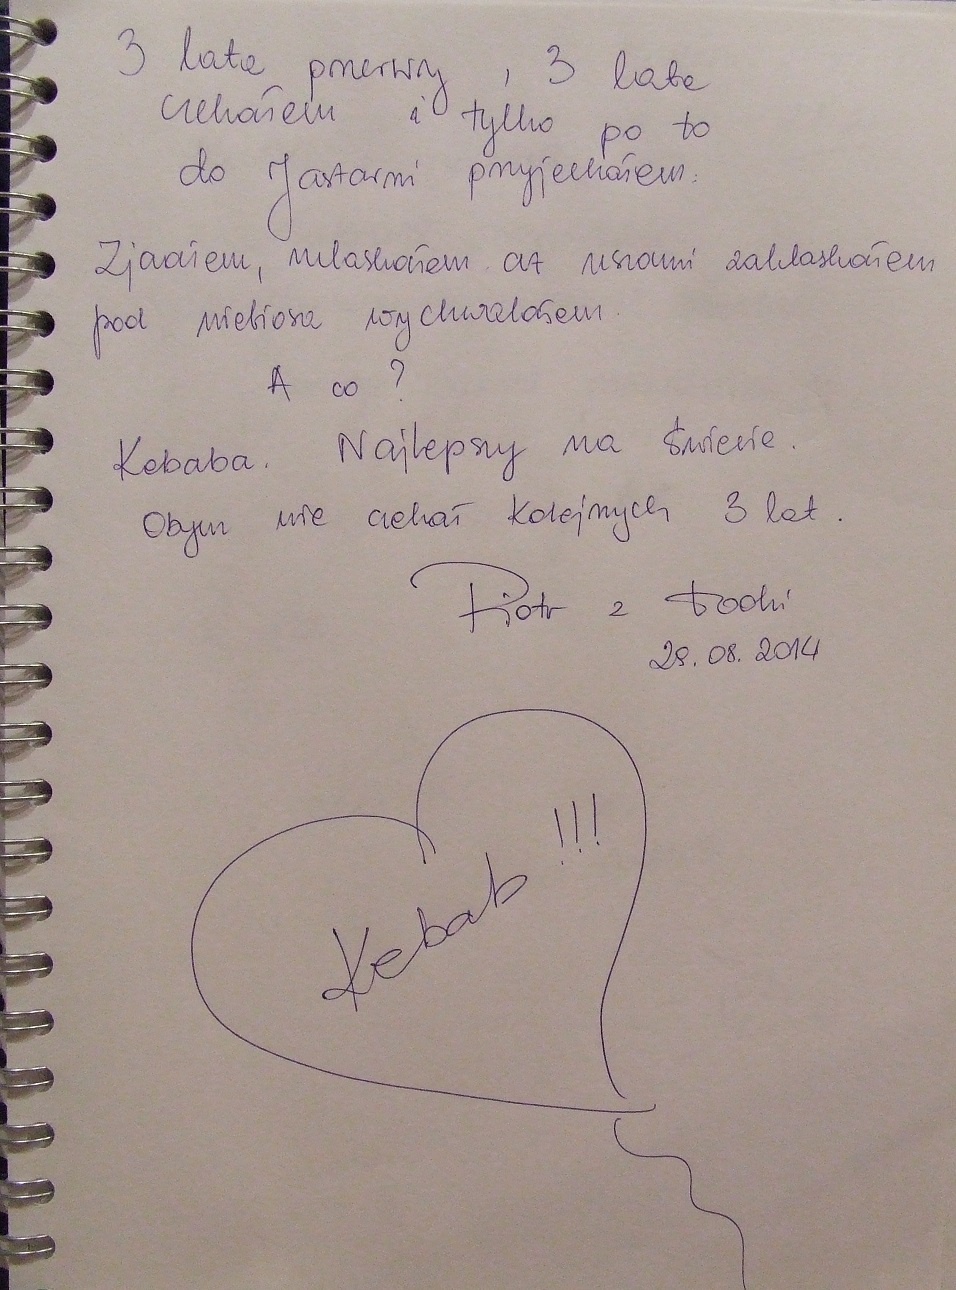 3 lata przerwy, 3 lata
czekałem i tylko po to
do Jastarni przyjechałem.
Zjadłem, mlaskałem aż uszami zaklaskałem
pod niebiosa wychwalałem.
A co?
Kebaba. Najlepszy na świecie.
Obym nie czekał kolejnych 3 lat.
Piotr z Łodzi
28.08.2014
Kebab !!!